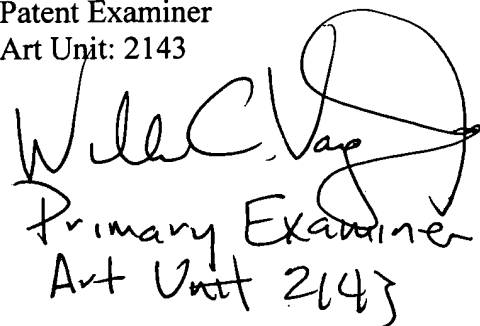 Patent Examiner
Art Unit: 2143
C.
Primary Examiner
Art Unit 2143